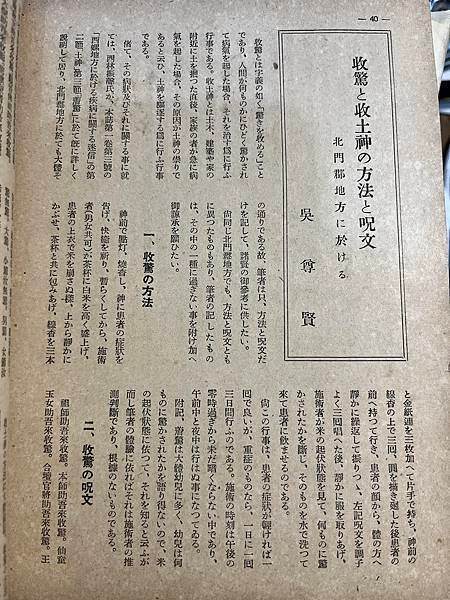 — 40 —
收驚と收土神の方法と呪文
北門郡地方に於ける
吳尊賢
收驚とは字義の如く「驚きを收める」こと
であり、人間が何ものかにひどく驚かされ
て病氣を起した場合、それを治す爲に行ふ
行事である。收土神とは土木、建築や家の
附近に土を掘つた直後、家族の者が急に病
氣を起した場合、その原因が土神の祟りで
あると云ひ、土神を驅逐する爲に行ふ行事
である。
偖て、その病狀及びそれに關する事に就
ては、西林振聲氏が、本誌第一卷第三號の
「西螺地方に於ける疾病に關する迷信」の第
二節「土神」第三節「著驚」に於て旣に詳しく
說明して居り、北門郡地方に於ても大體そ
の通りである故、筆者は只、方法と呪文だ
けを記して、諸賢の御參考に供したい。
尙同じ北門郡地方でも、方法と呪文とも
に異つたものもあり、筆者の記したもの
は、その中の一種に過ぎない事を附け加へ
御諒承を願ひたい。
一、收驚の方法
神前で點灯、燒香し、神に患者の症狀を
告げ、快癒を祈り、暫らくしてから、施術
者(男女共可)が茶杯に白米を高く盛上げ、
患者の上衣で米を崩さぬ樣、上から靜かに
かぶせ、茶杯と共に包みあげ、線香を三本
と金紙連を三枚加へて片手で持ち、神前の
線香の上で三回、圓を描き廻した後患者の
前へ持つて行き、患者の顏から、體の方へ
靜かに繰返して振りつゝ、左記呪文を調子
よく三回唱へた後、靜かに服を取りあげ、
施術者が米の起伏狀態を見て、何ものに驚
かされたかを斷じ、そのものを水で洗つて
來て患者に飮ませるのである。
尙この行事は、患者の症狀が輕ければ一
回で良いが、重症のものなら、一日に一回
三日間行ふのである。施術の時刻は午後の
零時過ぎから未だ暗くならない中であり、
午前中と夜中は行はぬ事になつてゐる。
附記、著驚は大體幼兒に多く、幼兒は何
ものに驚かされたかを語り得ないので、米
の起伏狀態に依つて、それを知ると云ふが
而し筆者の體驗に依ればそれは施術者の推
測判斷であり、根據のないものである。
二、收驚の呪文
祖師助吾來收驚。本師助吾來收驚。仙童
玉女助吾來收驚。合壇官將助吾來收驚。王